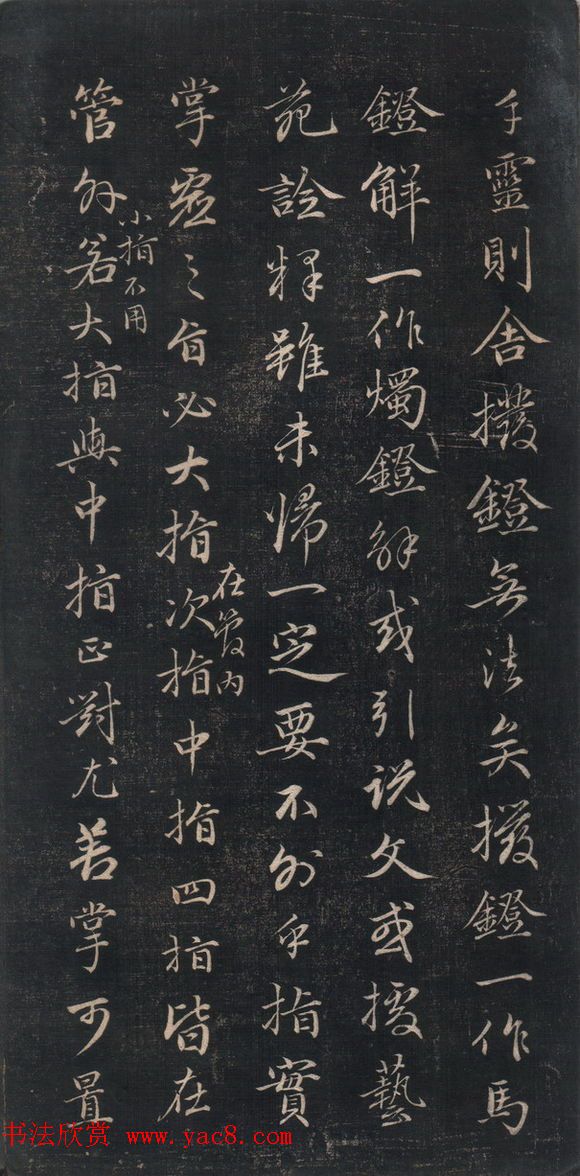 手靈則舍撥鐙無法矣撥鐙一作馬
鐙解一作燭鐙解或引説文或援藝
苑詮釋雖未歸一定要不外乎指實
在管内
掌虛之旨必大指次指中指四指皆在
小指不用
管外若大指與中指正對尤善掌可置
书法欣赏 www.yac8.com